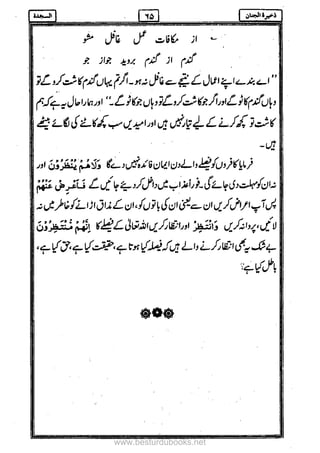 ذخیرة الجنان
۶۵
السجدة
از مکافات عمل غافل مشو
گندم از گندم بروید جواز جو
"اے بندے اپنے اعمال کے نتیجے سے غافل نہ ہو۔ اگر تم یہاں گندم کاشت کرو گے تو
وہاں گندم کاٹو گے اور اگر جو کاشت کرو گے تو وہاں جو کاٹو گے۔" اور ہمارا حال یہ ہے کہ ہم
کاشت تو کچھ کرنے کے لیے تیار نہیں اور امیدیں سب کچھ کاٹنے کی لگائے بیٹھے
ہیں۔
فرمایا کافروں کو فیصلے والے دن ایمان فائدہ نہیں دے گا وَلَا هُمْ يُنْظَرُوْنَ اور
نہ ان کو مہلت دی جائے گی۔ فوراً عذاب میں داخل کر دیئے جائیں گے فَاَعْرِضْ عَنْهُمْ
پس آپ اعراض کریں ان سے یعنی ان کی باتوں کو، ان کے مذاق اڑانے کو خاطر میں نہ
لائیں، پروا نہ کریں وَانْتَظِرْ اور انتظار کریں اللہ تعالیٰ کے فیصلے کا اِنَّهُمْ مُّنْتَظِرُوْنَ
بے شک یہ بھی انتظار کرنے والے ہیں کہ فیصلہ کیا ہوتا ہے، حقیقت کیا ہے، حق کیا ہے،
باطل کیا ہے؟
www.besturdubooks.net